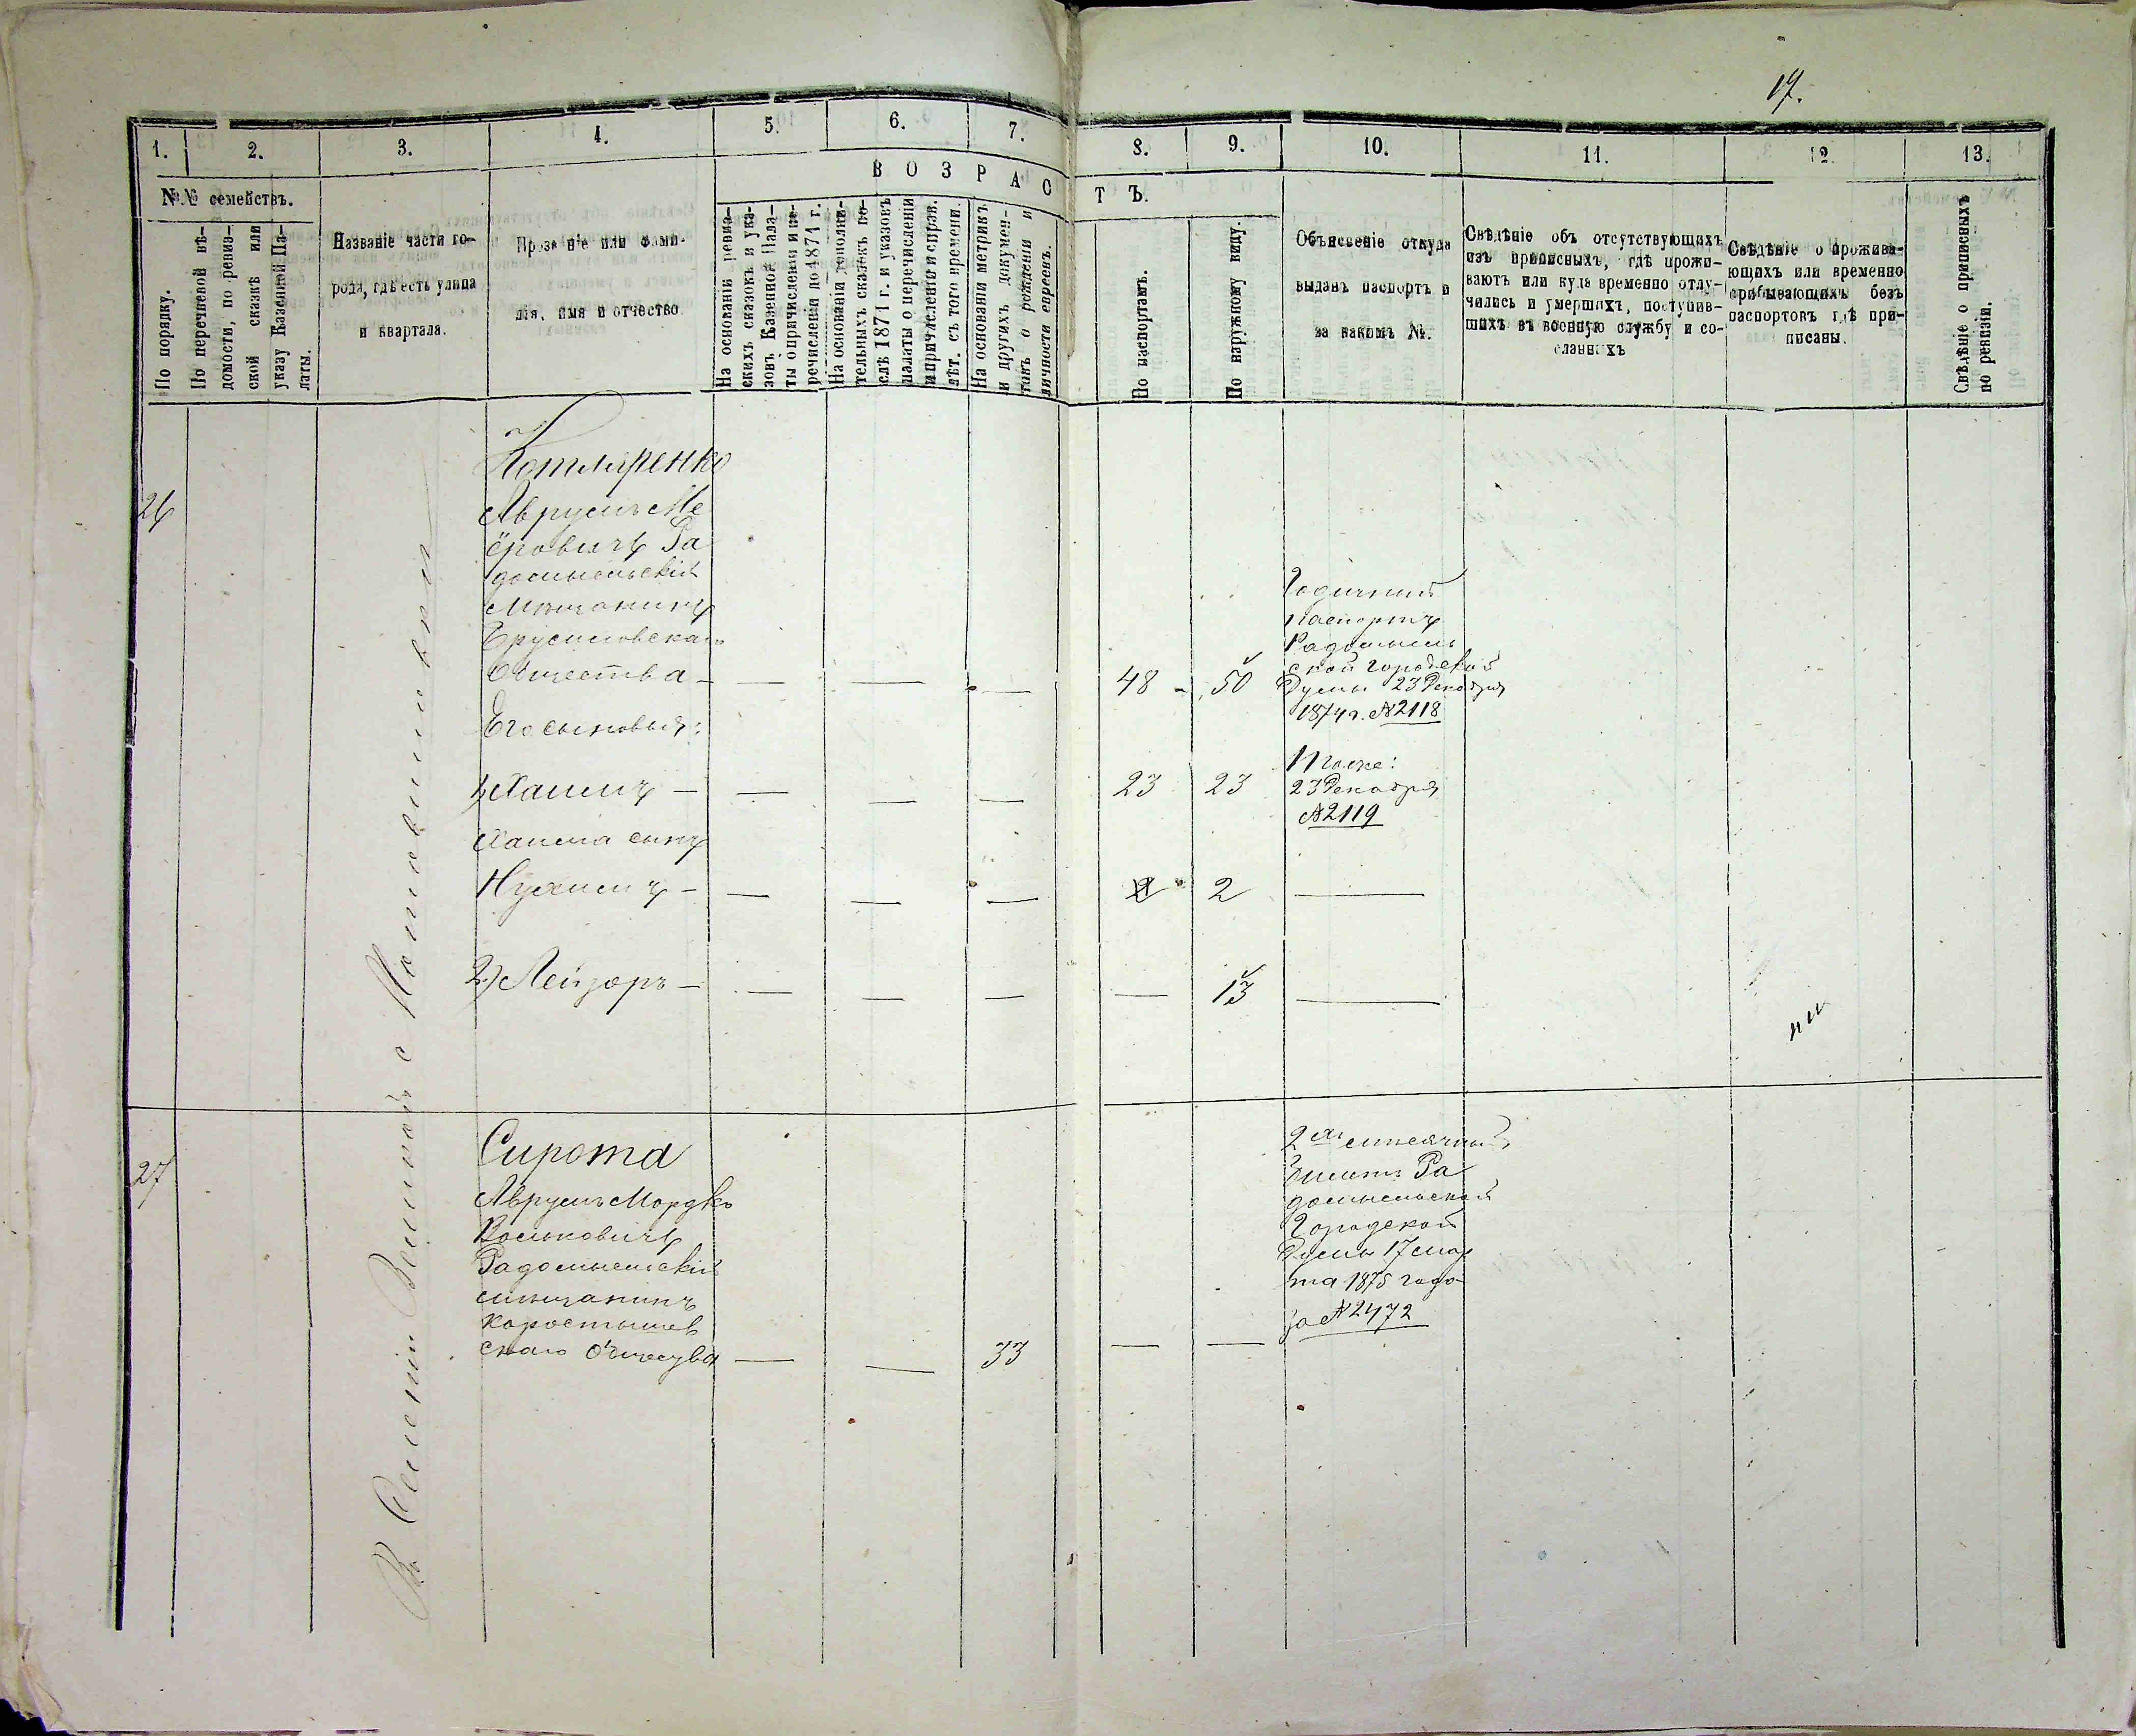 17.
1.
2.
3.
4.
5.
6.
7.
8.
9.
10.
11.
12.
13.
№№ семействъ.
В О З Р А С Т Ъ.
По порядку.
По перечневой вѣ-
домости, по ревиз-
ской сказкѣ или
указу Казенной Па-
латы.
Названіе части го-
рода, гдѣ есть улица
и квартала.
Прозваніе или фами-
лія, имя и отчество
На основаніи ревиз-
скихъ сказокъ и ука-
зовъ Казенной Пала-
ты о причисленіи и пе-
речисленіи до 1871 г.
На основаніи дополни-
тельныхъ сказокъ по-
слѣ 1871 г. и указовъ
палаты о перечисленіи
и причисленіи и справ.
лѣт. съ того времени.
На основаніи метрикъ
и другихъ докумен-
товъ о рожденіи и
личности евреевъ.
По паспортамъ.
По наружному виду.
Объясненіе откуда
выданъ паспортъ и
за какимъ №.
Свѣдѣніе объ отсутствующихъ
изъ приписныхъ, гдѣ прожи-
ваютъ или куда временно отлу-
чились и умершихъ, поступив-
шихъ въ военную службу и со-
сланныхъ
Свѣдѣніе о прожива-
ющихъ или временно
прибывающихъ безъ
паспортовъ гдѣ при-
писаны.
Свѣдѣніе о приписныхъ
по ревизіи.
Въ Селеніи Великой с Мотовиловки
26
Котляренко
Аврумъ Ме
ёровичъ Ра
домысльскій
Мѣщанинъ
Брусиловскаго
Общества — — — — 48 - 50
Годичный
паспортъ
Радомысль
ской городской
Думы 23 Декабря
1874 г. №2118
Его сыновья:
1) Хаимъ — — — — 23 23
Также:
23 Декабря
№2119
Хаима сынъ
Нухимъ — — — — 2 2 —
2) Лейзоръ — — — — — 13 —
27
Сирота
Аврумъ Мордко
Вольковичъ
Радомысльскій
мѣщанинъ
Коростышев
скаго Общества — — 33 — —
2хъ мѣсячный
билетъ Ра
домысльской
Городской
Думы 17 мар
та 1875 года
за №2472